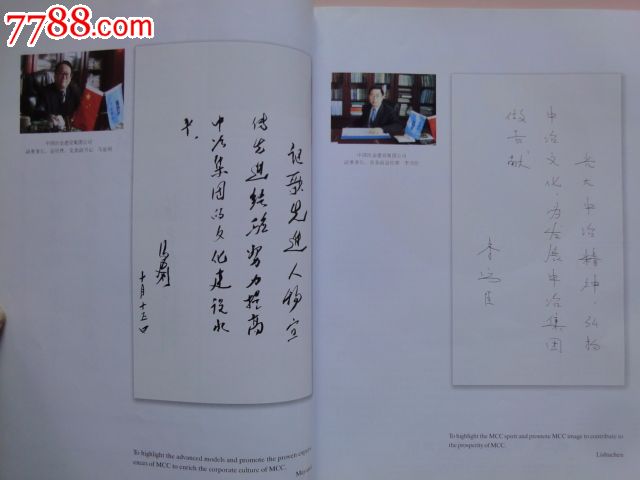 7788.com
中国冶金建设集团公司
讴歌先进人物宣
传先进经验努力提高
中冶集团的文化建设水
平。
十月十三日
To highlight the advanced models and promote the proven
of MCC to enrich the corporate culture of MCC.
中国冶金建设集团公司
光大中冶精神,弘扬
中冶文化,为发展中冶集团
做贡献
To highlight the MCC spirit and promote MCC image to contribute to
the prosperity of MCC.